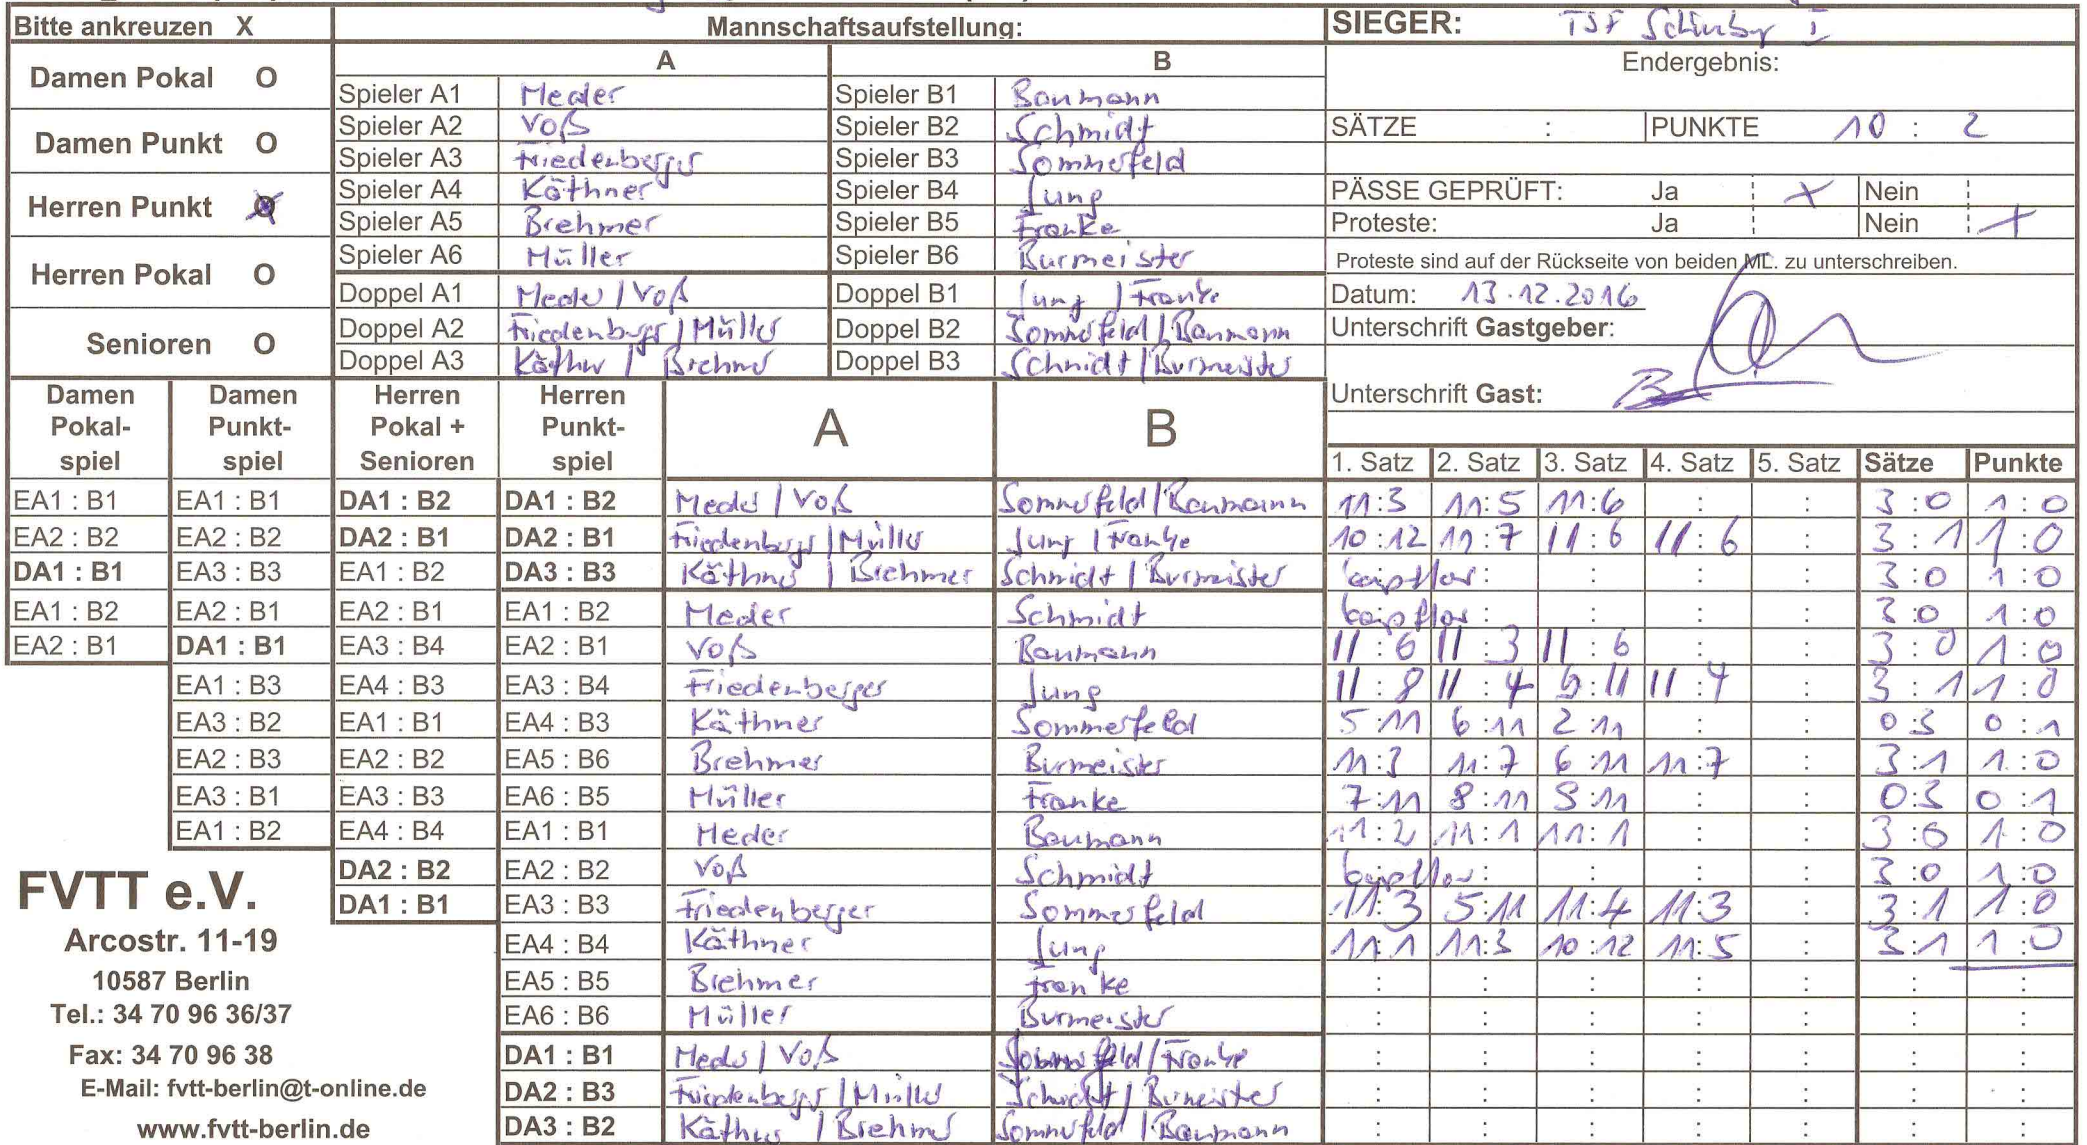 Bitte ankreuzen X
Mannschaftsaufstellung:
SIEGER: TSF I
Damen Pokal O
Damen Punkt O
Herren Punkt O
Herren Pokal O
Senioren O
A B
Spieler A1 Meder Spieler B1 Baumann
Spieler A2 Voß Spieler B2 Schmidt
Spieler A3 Friedenberger Spieler B3 Sommerfeld
Spieler A4 Käthner Spieler B4 Jung
Spieler A5 Brehmer Spieler B5 Franke
Spieler A6 Müller Spieler B6 Burmeister
Doppel A1 Meder / Voß Doppel B1 Jung / Franke
Doppel A2 Friedenberger / Müller Doppel B2 Sommerfeld / Baumann
Doppel A3 Käthner / Brehmer Doppel B3 Schmidt / Burmeister
Endergebnis:
SÄTZE : PUNKTE 10 : 2
PÄSSE GEPRÜFT: Ja X Nein
Proteste: Ja Nein X
Proteste sind auf der Rückseite von beiden ML. zu unterschreiben.
Datum: 13.12.2016
Unterschrift Gastgeber:
Unterschrift Gast:
Damen Pokal-spiel Damen Punkt-spiel Herren Pokal + Senioren Herren Punkt-spiel A B
1. Satz 2. Satz 3. Satz 4. Satz 5. Satz Sätze Punkte
EA1 : B1 EA1 : B1 DA1 : B2 DA1 : B2 Meder / Voß Sommerfeld / Baumann 11:3 11:5 11:6 : : 3:0 1:0
EA2 : B2 EA2 : B2 DA2 : B1 DA2 : B1 Friedenberger / Müller Jung / Franke 10:12 11:7 11:6 11:6 : 3:1 1:0
DA1 : B1 EA3 : B3 EA1 : B2 DA3 : B3 Käthner / Brehmer Schmidt / Burmeister kampflos : : : : 3:0 1:0
EA1 : B2 EA2 : B1 EA2 : B1 EA1 : B2 Meder Schmidt kampflos : : : : 3:0 1:0
EA2 : B1 DA1 : B1 EA3 : B4 EA2 : B1 Voß Baumann 11:6 11:3 11:6 : : 3:0 1:0
EA1 : B3 EA4 : B3 EA3 : B4 Friedenberger Jung 11:8 11:4 9:11 11:4 : 3:1 1:0
EA3 : B2 EA1 : B1 EA4 : B3 Käthner Sommerfeld 5:11 6:11 2:11 : : 0:3 0:1
EA2 : B3 EA2 : B2 EA5 : B6 Brehmer Burmeister 11:3 11:7 6:11 11:7 : 3:1 1:0
EA3 : B1 EA3 : B3 EA6 : B5 Müller Franke 7:11 8:11 9:11 : : 0:3 0:1
EA1 : B2 EA4 : B4 EA1 : B1 Meder Baumann 11:2 11:1 11:1 : : 3:0 1:0
DA2 : B2 EA2 : B2 Voß Schmidt kampflos : : : : 3:0 1:0
DA1 : B1 EA3 : B3 Friedenberger Sommerfeld 11:3 5:11 11:4 11:3 : 3:1 1:0
EA4 : B4 Käthner Jung 11:1 11:3 10:12 11:5 : 3:1 1:0
EA5 : B5 Brehmer Franke : : : : : : :
EA6 : B6 Müller Burmeister : : : : : : :
DA1 : B1 Meder / Voß Franke : : : : : : :
DA2 : B3 Friedenberger / Müller Schmidt / Burmeister : : : : : : :
DA3 : B2 Käthner / Brehmer Sommerfeld / Baumann : : : : : : :
FVTT e.V.
Arcostr. 11-19
10587 Berlin
Tel.: 34 70 96 36/37
Fax: 34 70 96 38
E-Mail: fvtt-berlin@t-online.de
www.fvtt-berlin.de